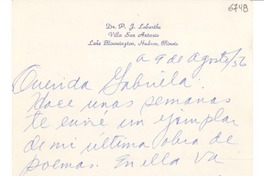 6748
Dr. P. J. Labarthe
Villa San Antonio
Lake Bloomington, Hudson, Illinois
a 9 de Agosto/56
Querida Gabriela:
Hace unas semanas
te envié un ejemplar
de mi última obra de
poemas. En ella va